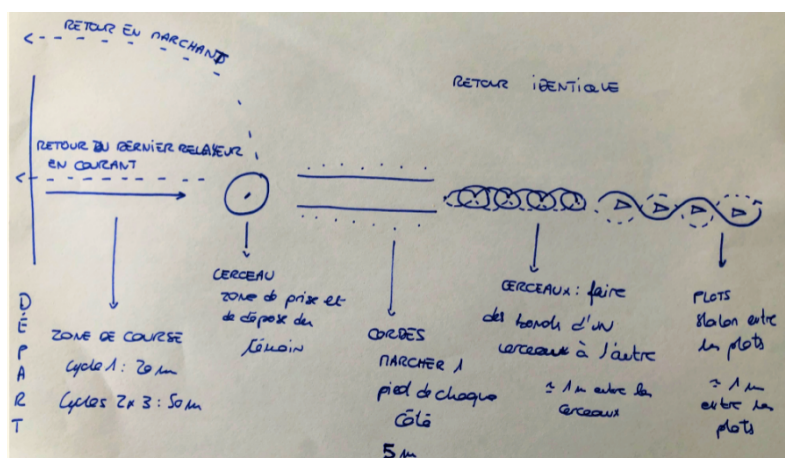 RETOUR EN MARCHANT
RETOUR IDENTIQUE
RETOUR DU DERNIER RELAYEUR
EN COURANT
DÉPART
ZONE DE COURSE
Cycle 1 : 20 m
Cycles 2 x 3 : 50 m
CERCEAU
zone de prise et
de dépose du
témoin
CORDES
MARCHER 1
pied de chaque
côté
5 m
CERCEAUX : faire
des bonds d'un
cerceaux à l'autre
≃ 1 m entre les
cerceaux
PLOTS
slalon entre
les plots
≃ 1 m
entre les
plots